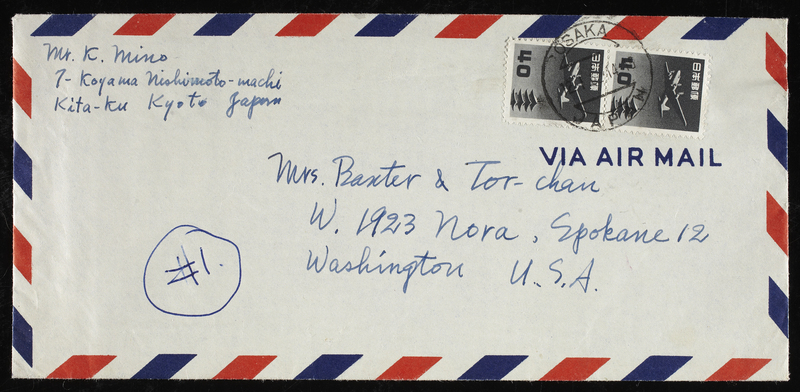 Mr. K. Mino
7- Koyama Nishimoto-machi
Kita-Ku Kyoto Japan
OSAKA
JAPAN
40
日本郵便
40
日本郵便
VIA AIR MAIL
Mrs. Baxter & Tor-chan
W. 1923 Nora, Spokane 12
Washington U.S.A.
#1.